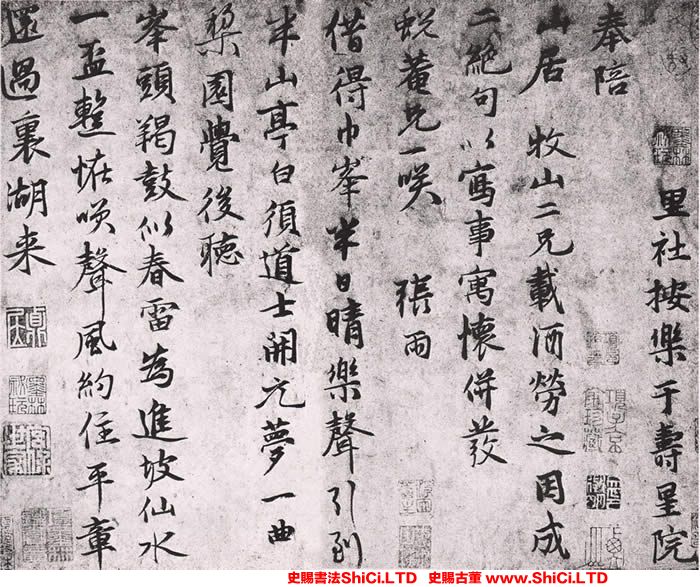 里社按樂于壽星院
奉陪
山居 牧山二兄載酒勞之因成
二絕句以寫事寓懷併發
蛻菴兄一咲 張雨
借得巾峯半日晴樂聲引到
半山亭白須道士開元夢一曲
棃園覺後聽
峯頭羯鼓似春雷為進坡仙水
一盃整恠咲聲風約住平章
還過裏湖来
史賜書法ShiCi.LTD 史賜古董 www.ShiCi.LTD